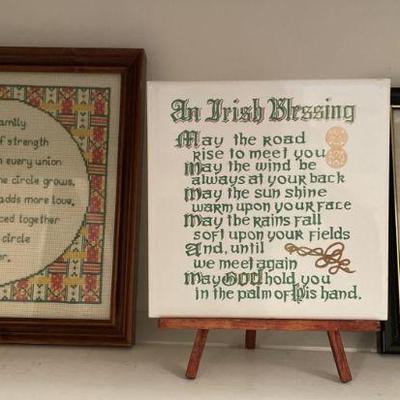 amily
f strength
n every union
ne circle grows,
adds more love,
ced together
circle
er.
An Irish Blessing
May the road
rise to meet you
May the wind be
always at your back
May the sun shine
warm upon your face
May the rains fall
soft upon your fields
And, until
we meet again
May God hold you
in the palm of His hand.